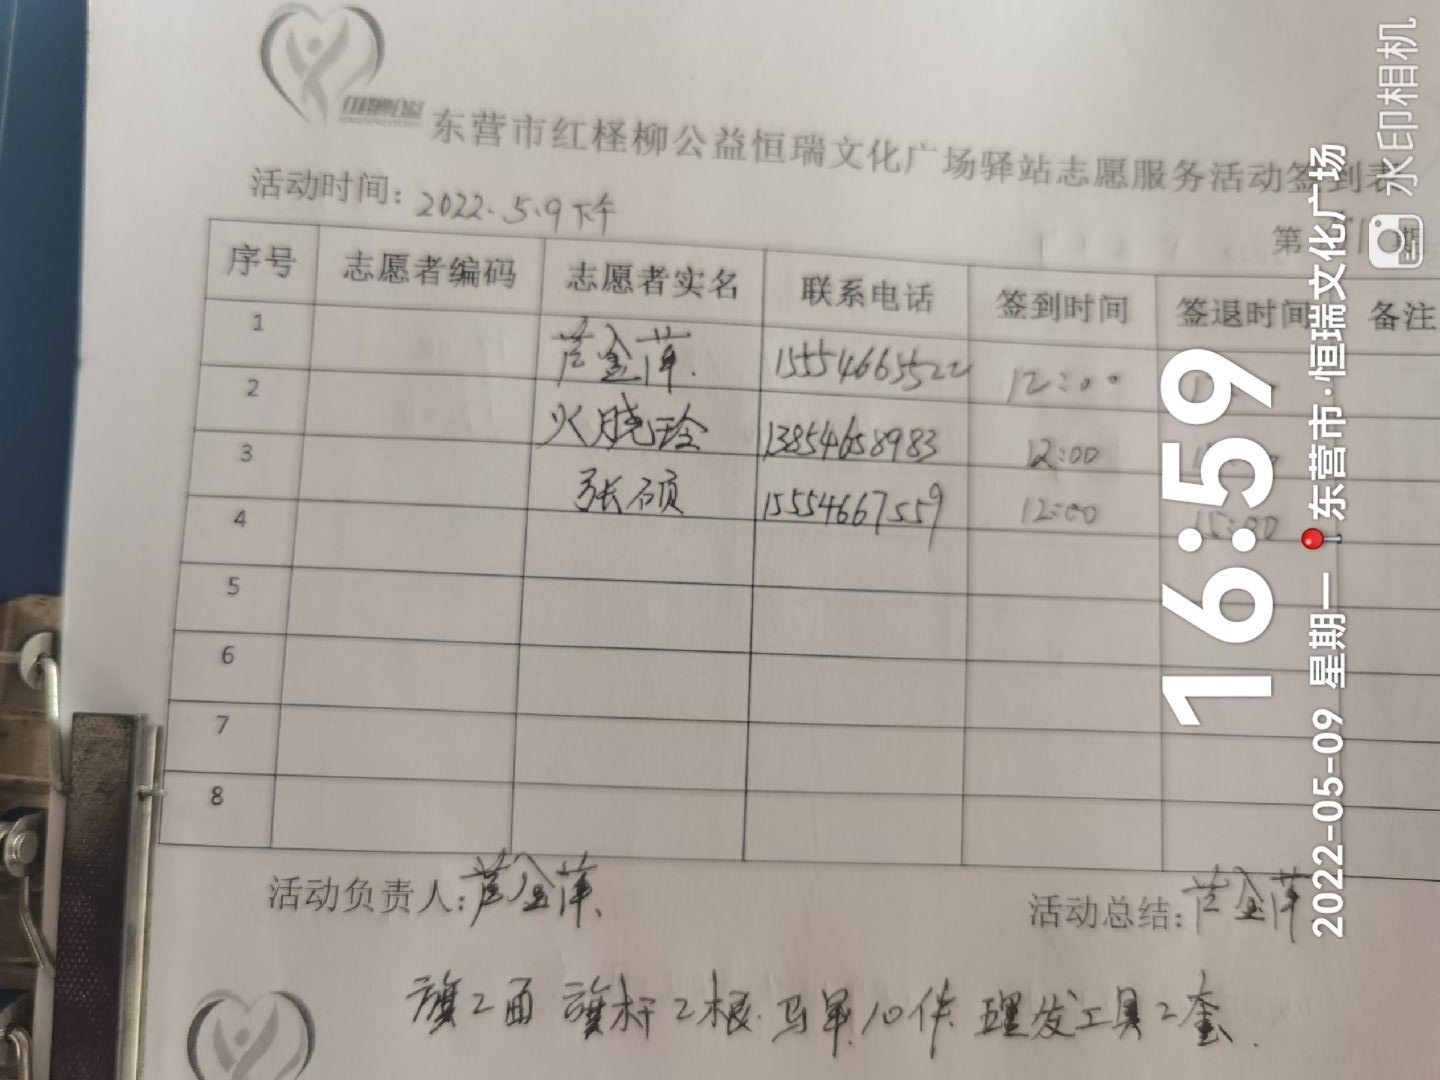 东营市红柽柳公益恒瑞文化广场驿站志愿服务活动签到表
活动时间: 2022.5.9下午
第 期
序号 志愿者编码 志愿者实名 联系电话 签到时间 签退时间 备注
1 芦金萍 15554665522 12:00
2 火晓玲 13854658983 12:00
3 张硕 15554667559 12:00 15:00
4
5
6
7
8
活动负责人: 芦金萍 活动总结: 芦金萍
旗2面 旗杆2根 马甲10件 理发工具2套.
水印相机
16:59
2022-05-09 星期一 东营市·恒瑞文化广场